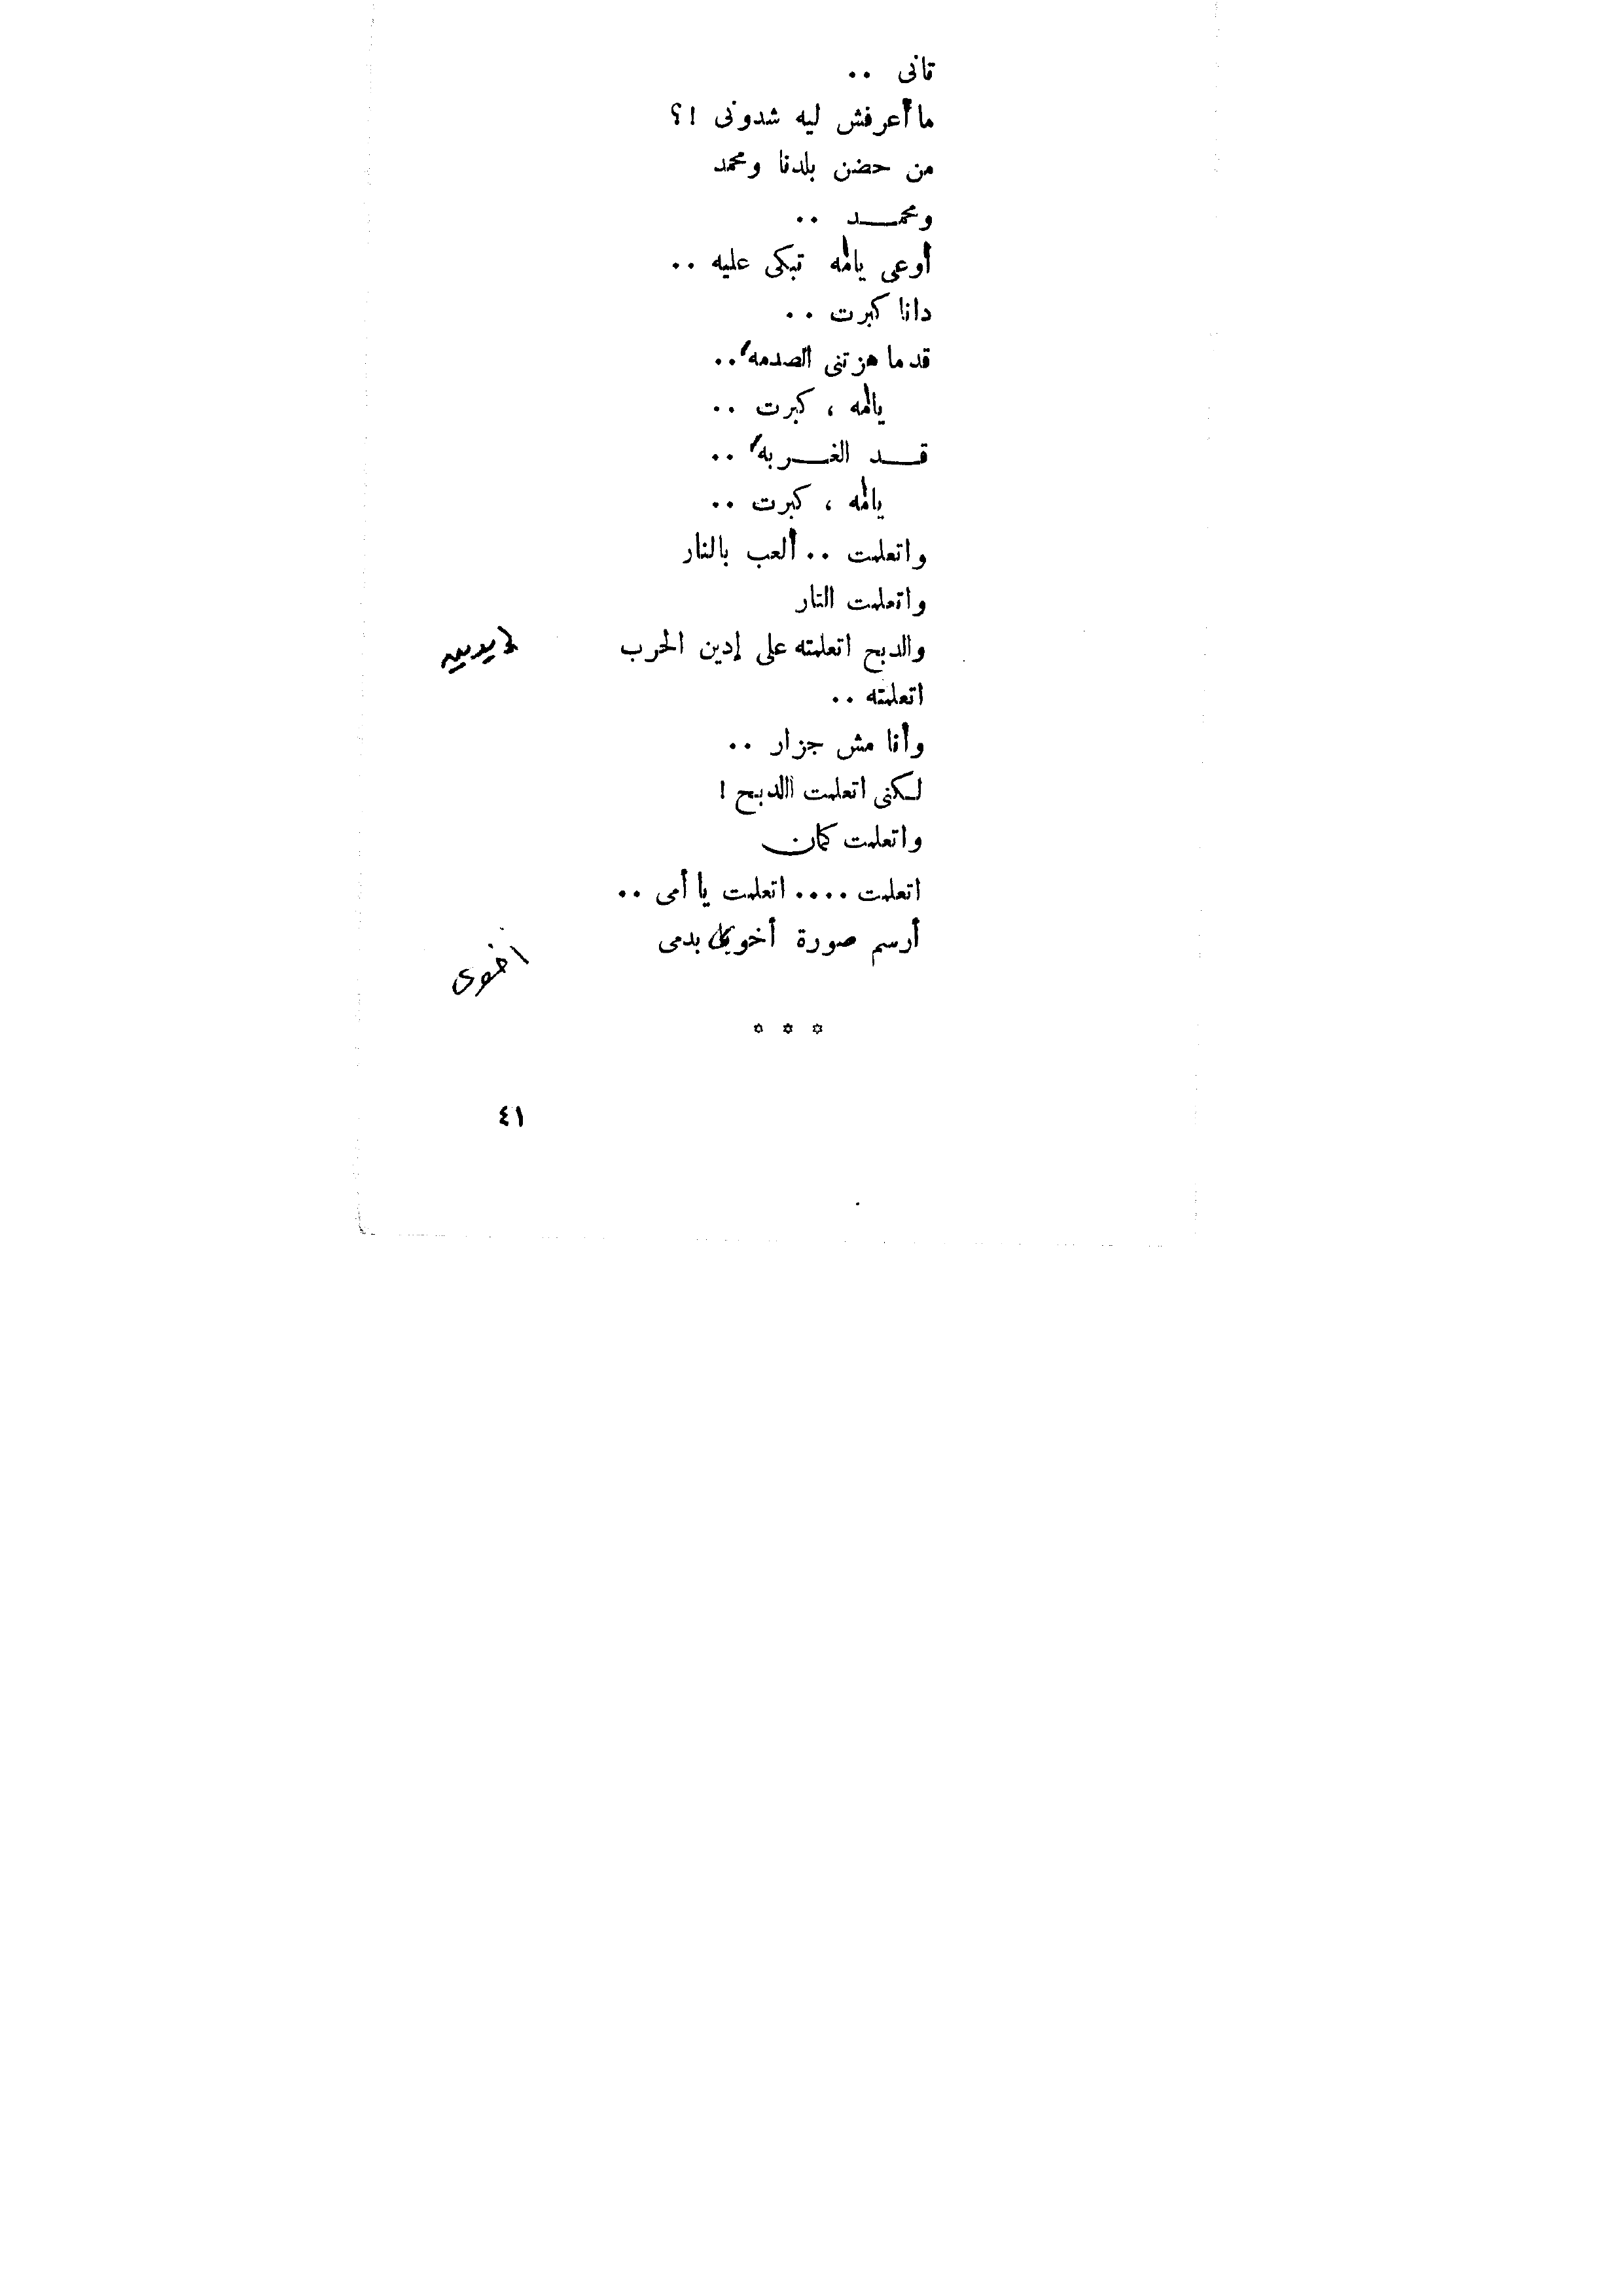 تانى ..
ما أعرفش ليه شدونى !؟
من حضن بلدنا ومحمد
ومحمـــد ..
أوعى يامه تبكى عليه ..
دانا كبرت ..
قد ما هزتنى الصدمه ..
يامه ، كبرت ..
قـــد الغـــربه ..
يامه ، كبرت ..
واتعلمت .. ألعب بالنار
واتعلمت التار
والدبح اتعلمته على إدين الحرب
إيدين
اتعلمته ..
وأنا مش جزار ..
لـكنى اتعلمت الدبح !
واتعلمت كمان
اتعلمت .... اتعلمت يا أمى ..
أرسم صورة أخويا بدمى
اخوى
* * *
٤١